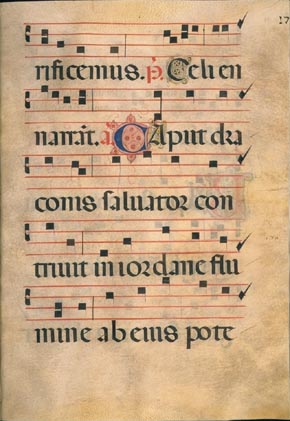 17
rificemus. p̄. Celi en
narrāt. a. Caput dra
conis saluator con
triuit in iordane flu
mine ab eius pote